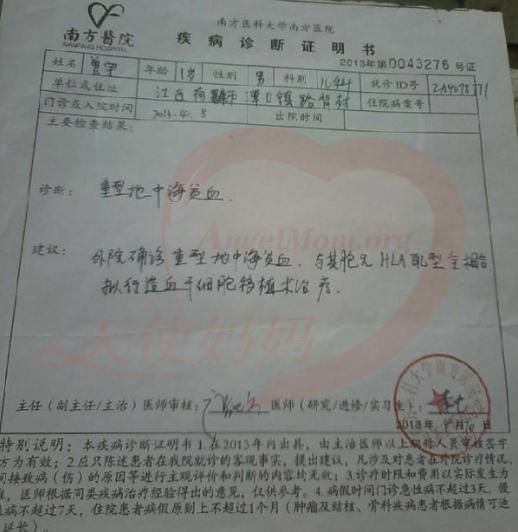 南方醫院
NANFANG HOSPITAL
南方医科大学南方医院
疾病诊断证明书
2013年第0043276号证
姓名 年龄 1岁 性别 男 科别 儿科 就诊ID号
单位或住址 江西 潭口镇
门诊或入院时间 2013.4.8 出院时间 住院病案号
主要检查结果:
诊断: 重型地中海贫血.
AngelMom.org
建议: 外院确诊重型地中海贫血. 与其胞兄HLA配型全相合
拟行造血干细胞移植术治疗.
天使妈妈
主任(副主任/主治)医师审核: 医师(研究/进修/实习生):
2013年4月
特别说明:本疾病诊断证明书1.在2013年内出具,由主治医师以上职称人员审核签字
方为有效;2.应只陈述患者在我院就诊的客观事实,提出建议,凡涉及对患者在外院诊疗情况、
间接致病(伤)的原因等进行主观评价和判断的内容均无效;3.诊疗时限和费用以实际发生为
准,医师根据同类疾病治疗经验得出的意见,仅供参考。4.病假时间门诊急性病不超过3天,慢
性病不超过7天,住院患者病假原则上不超过1个月(肿瘤及结核、骨科疾病患者根据病情可适
延长)。